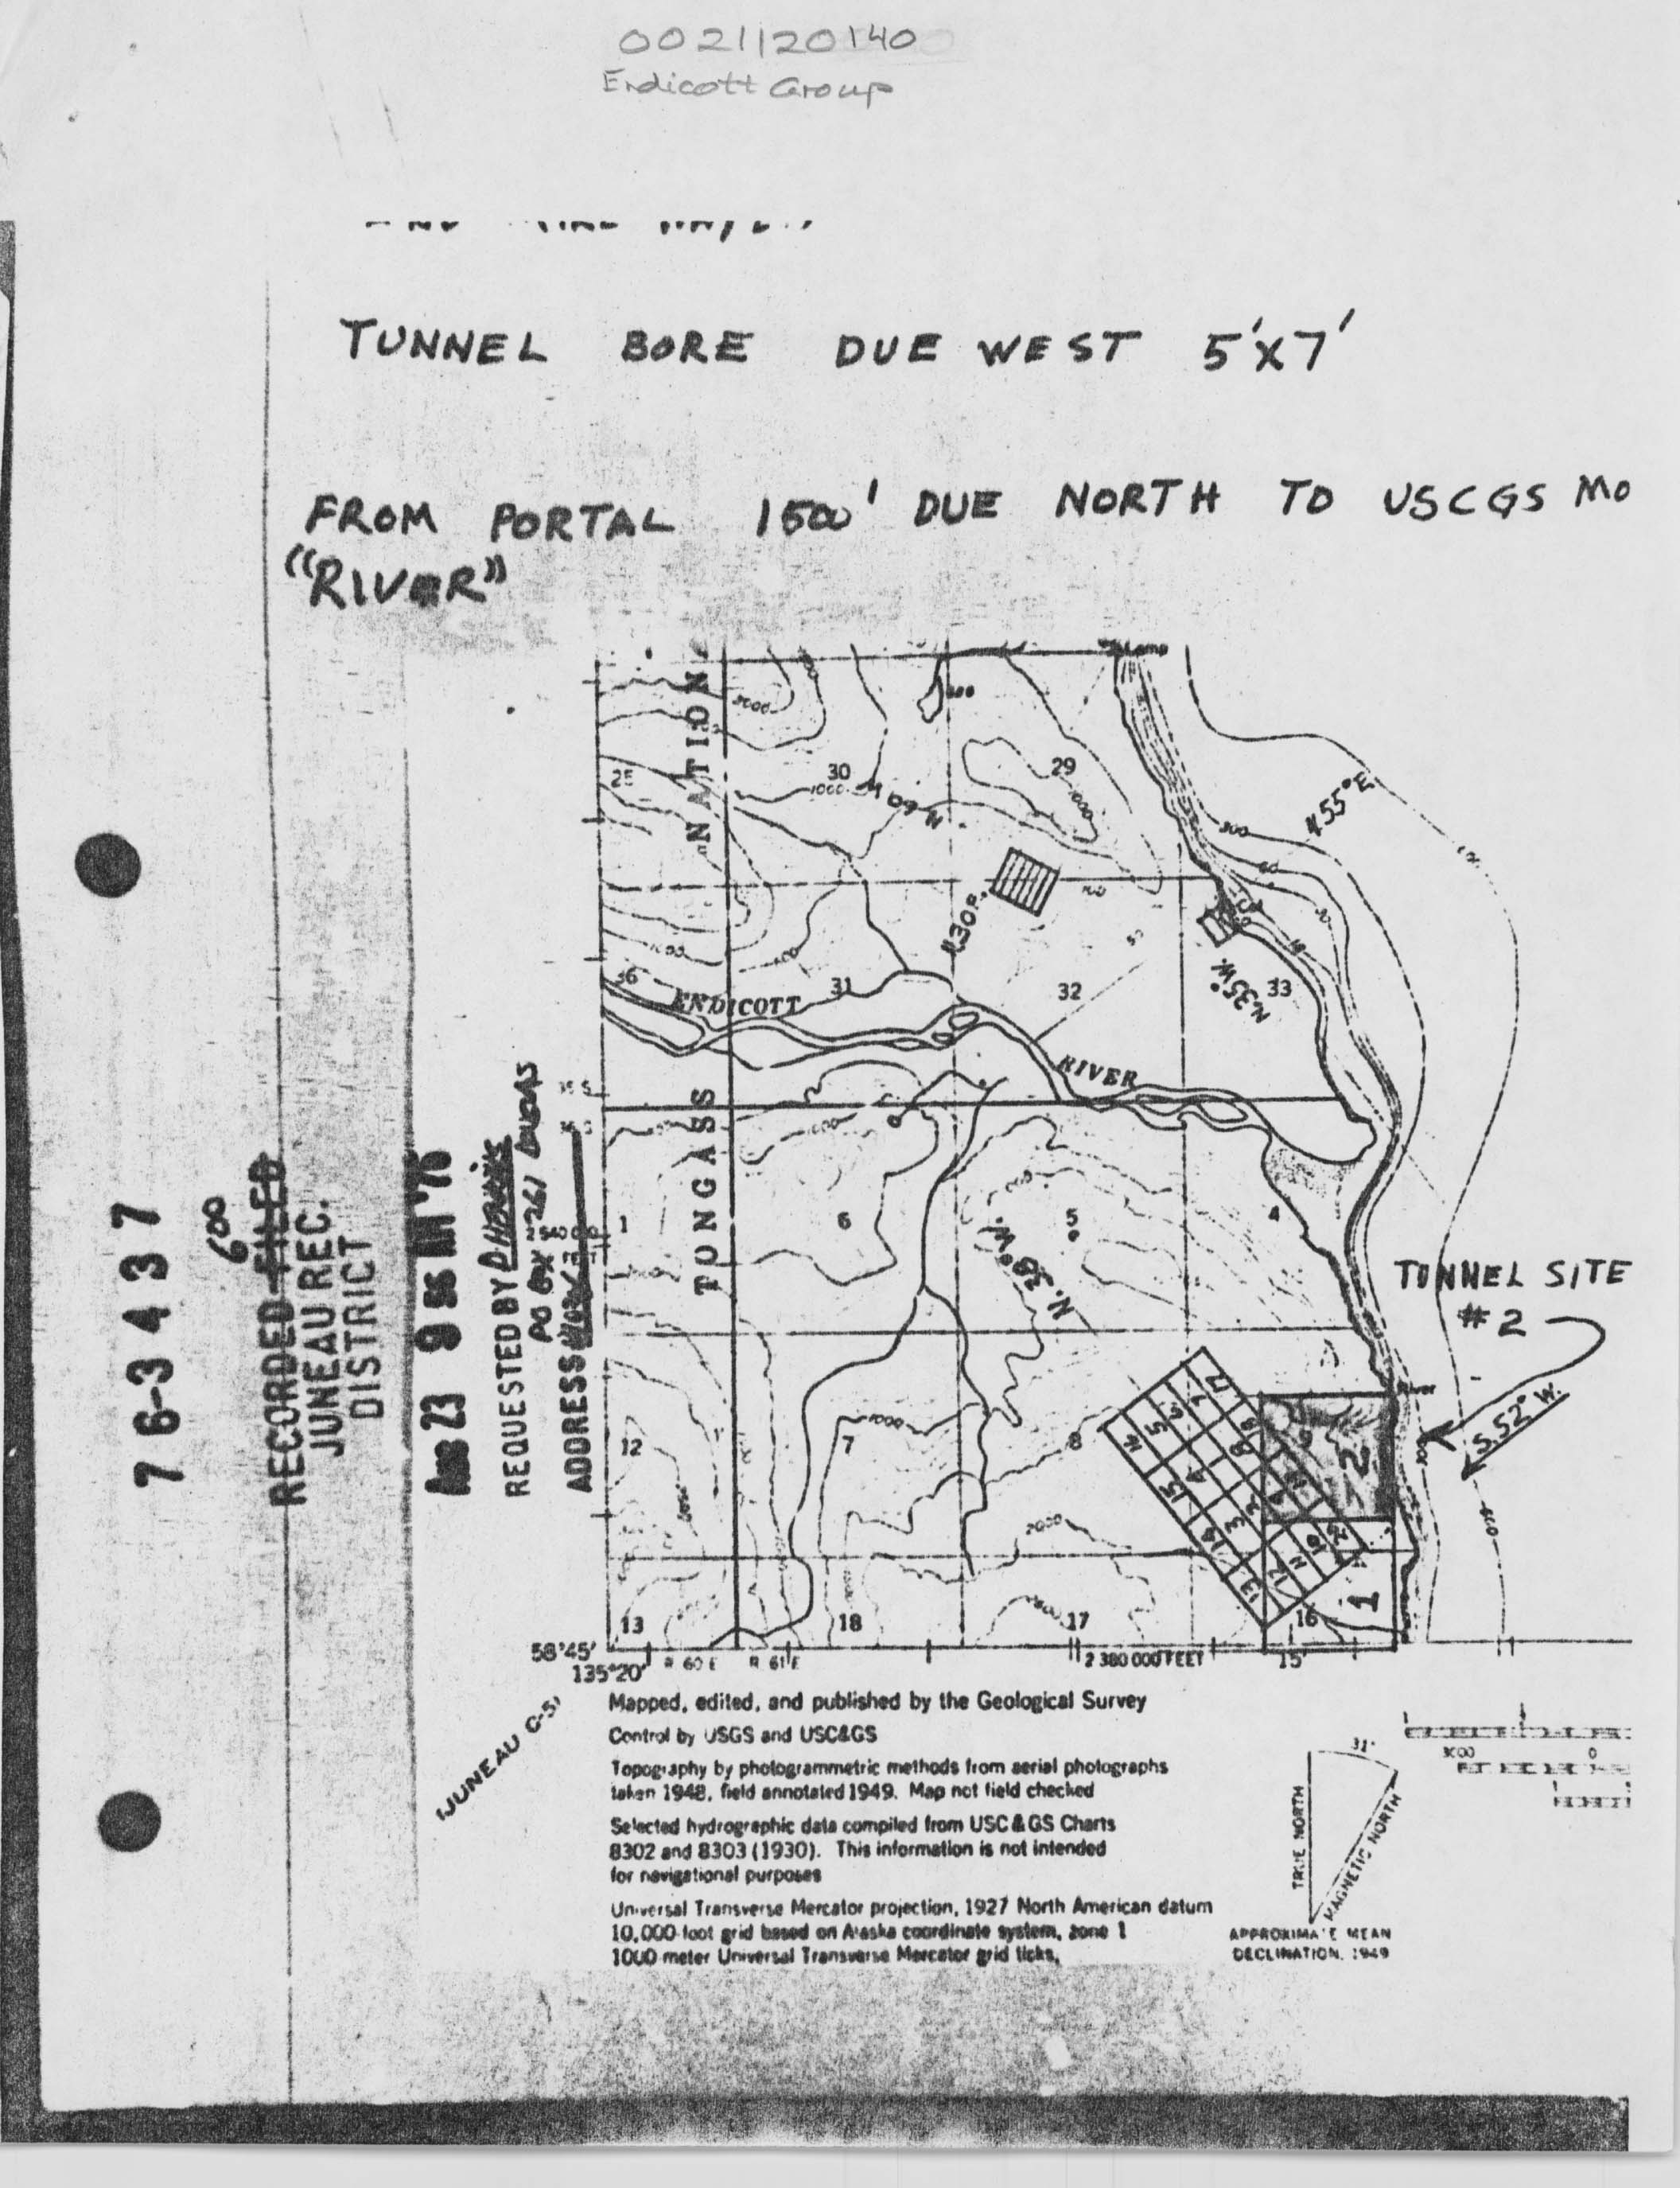 0021120140
Endicott Group
TUNNEL BORE DUE WEST 5'X7'
FROM PORTAL 1500' DUE NORTH TO USCGS MO
"RIVER"
76-3437
600
RECORDED FILED
JUNEAU REC.
DISTRICT
AUG 23 9 56 AM '76
REQUESTED BY
PO BOX 261
ADDRESS
NATION
30
29
1000
N 60 W
N 55° E
N 30 E
N. 35° W.
ENDICOTT
31
32
33
RIVER
TONGASS
1
6
5
4
N. 38° W.
TUNNEL SITE
#2
River
S. 52° W.
12
7
8
1000
2000
17
7
6
5
4
8
9
15
14
3
13
12
11
10
2
1
13
18
17
16
58°45'
135°20'
R 60 E
R 61 E
2 380 000 FEET
15'
(JUNEAU C-5)
Mapped, edited, and published by the Geological Survey
Control by USGS and USC&GS
Topography by photogrammetric methods from aerial photographs
taken 1948, field annotated 1949. Map not field checked
Selected hydrographic data compiled from USC&GS Charts
8302 and 8303 (1930). This information is not intended
for navigational purposes
Universal Transverse Mercator projection, 1927 North American datum
10,000-foot grid based on Alaska coordinate system, zone 1
1000-meter Universal Transverse Mercator grid ticks,
31°
TRUE NORTH
MAGNETIC NORTH
APPROXIMATE MEAN
DECLINATION, 1949
3000
0